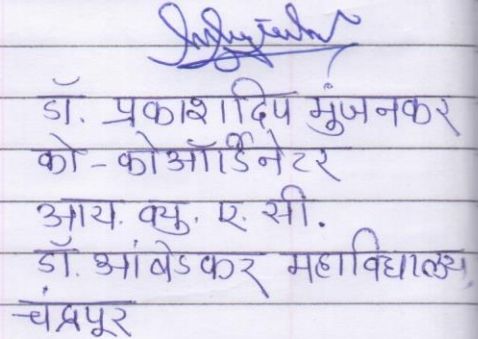 डॉ. प्रकाशादिप मुंजनकर
को - कोऑर्डिनेटर
आय. क्यु. ए. सी.
डॉ. आंबेडकर महाविद्यालय,
चंद्रपूर